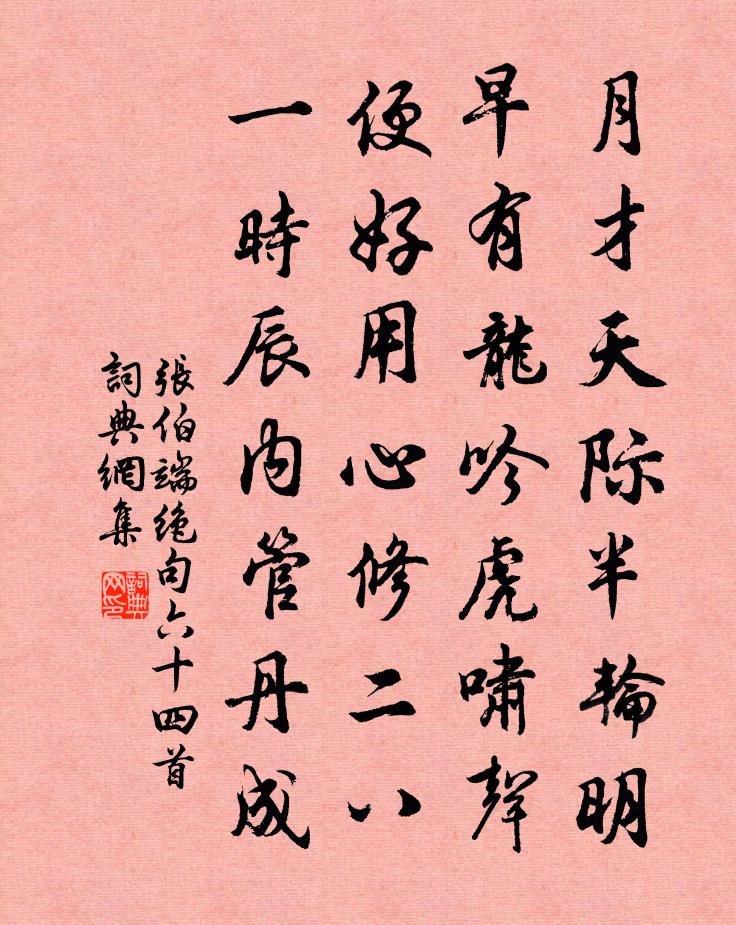 月才天际半輪明
早有龍吟虎嘯聲
便好用心修二八
一時辰内管丹成
張伯端绝句六十四首
詞典網集
詞典网印